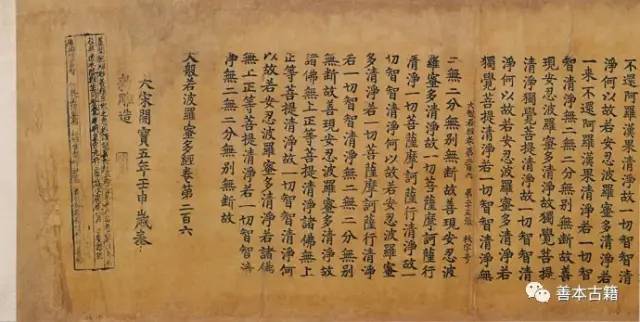 不還阿羅漢果清淨故一切智智清
淨何以故若安忍波羅蜜多清淨若
一來不還阿羅漢果清淨若一切智
智清淨無二無二分無別無斷故善
現安忍波羅蜜多清淨故獨覺菩提
清淨獨覺菩提清淨故一切智智清
淨何以故若安忍波羅蜜多清淨若
獨覺菩提清淨若一切智智清淨無
大般若經卷第二百六
二無二分無別無斷故善現安忍波
羅蜜多清淨故一切菩薩摩訶薩行
清淨一切菩薩摩訶薩行清淨故一
切智智清淨何以故若安忍波羅蜜
多清淨若一切菩薩摩訶薩行清淨
若一切智智清淨無二無二分無別
無斷故善現安忍波羅蜜多清淨故
諸佛無上正等菩提清淨諸佛無上
正等菩提清淨故一切智智清淨何
以故若安忍波羅蜜多清淨若諸佛
無上正等菩提清淨若一切智智清
淨無二無二分無別無斷故
大般若波羅蜜多經卷第二百六
大宋開寶五年壬申歲奉
勑雕造
善本古籍